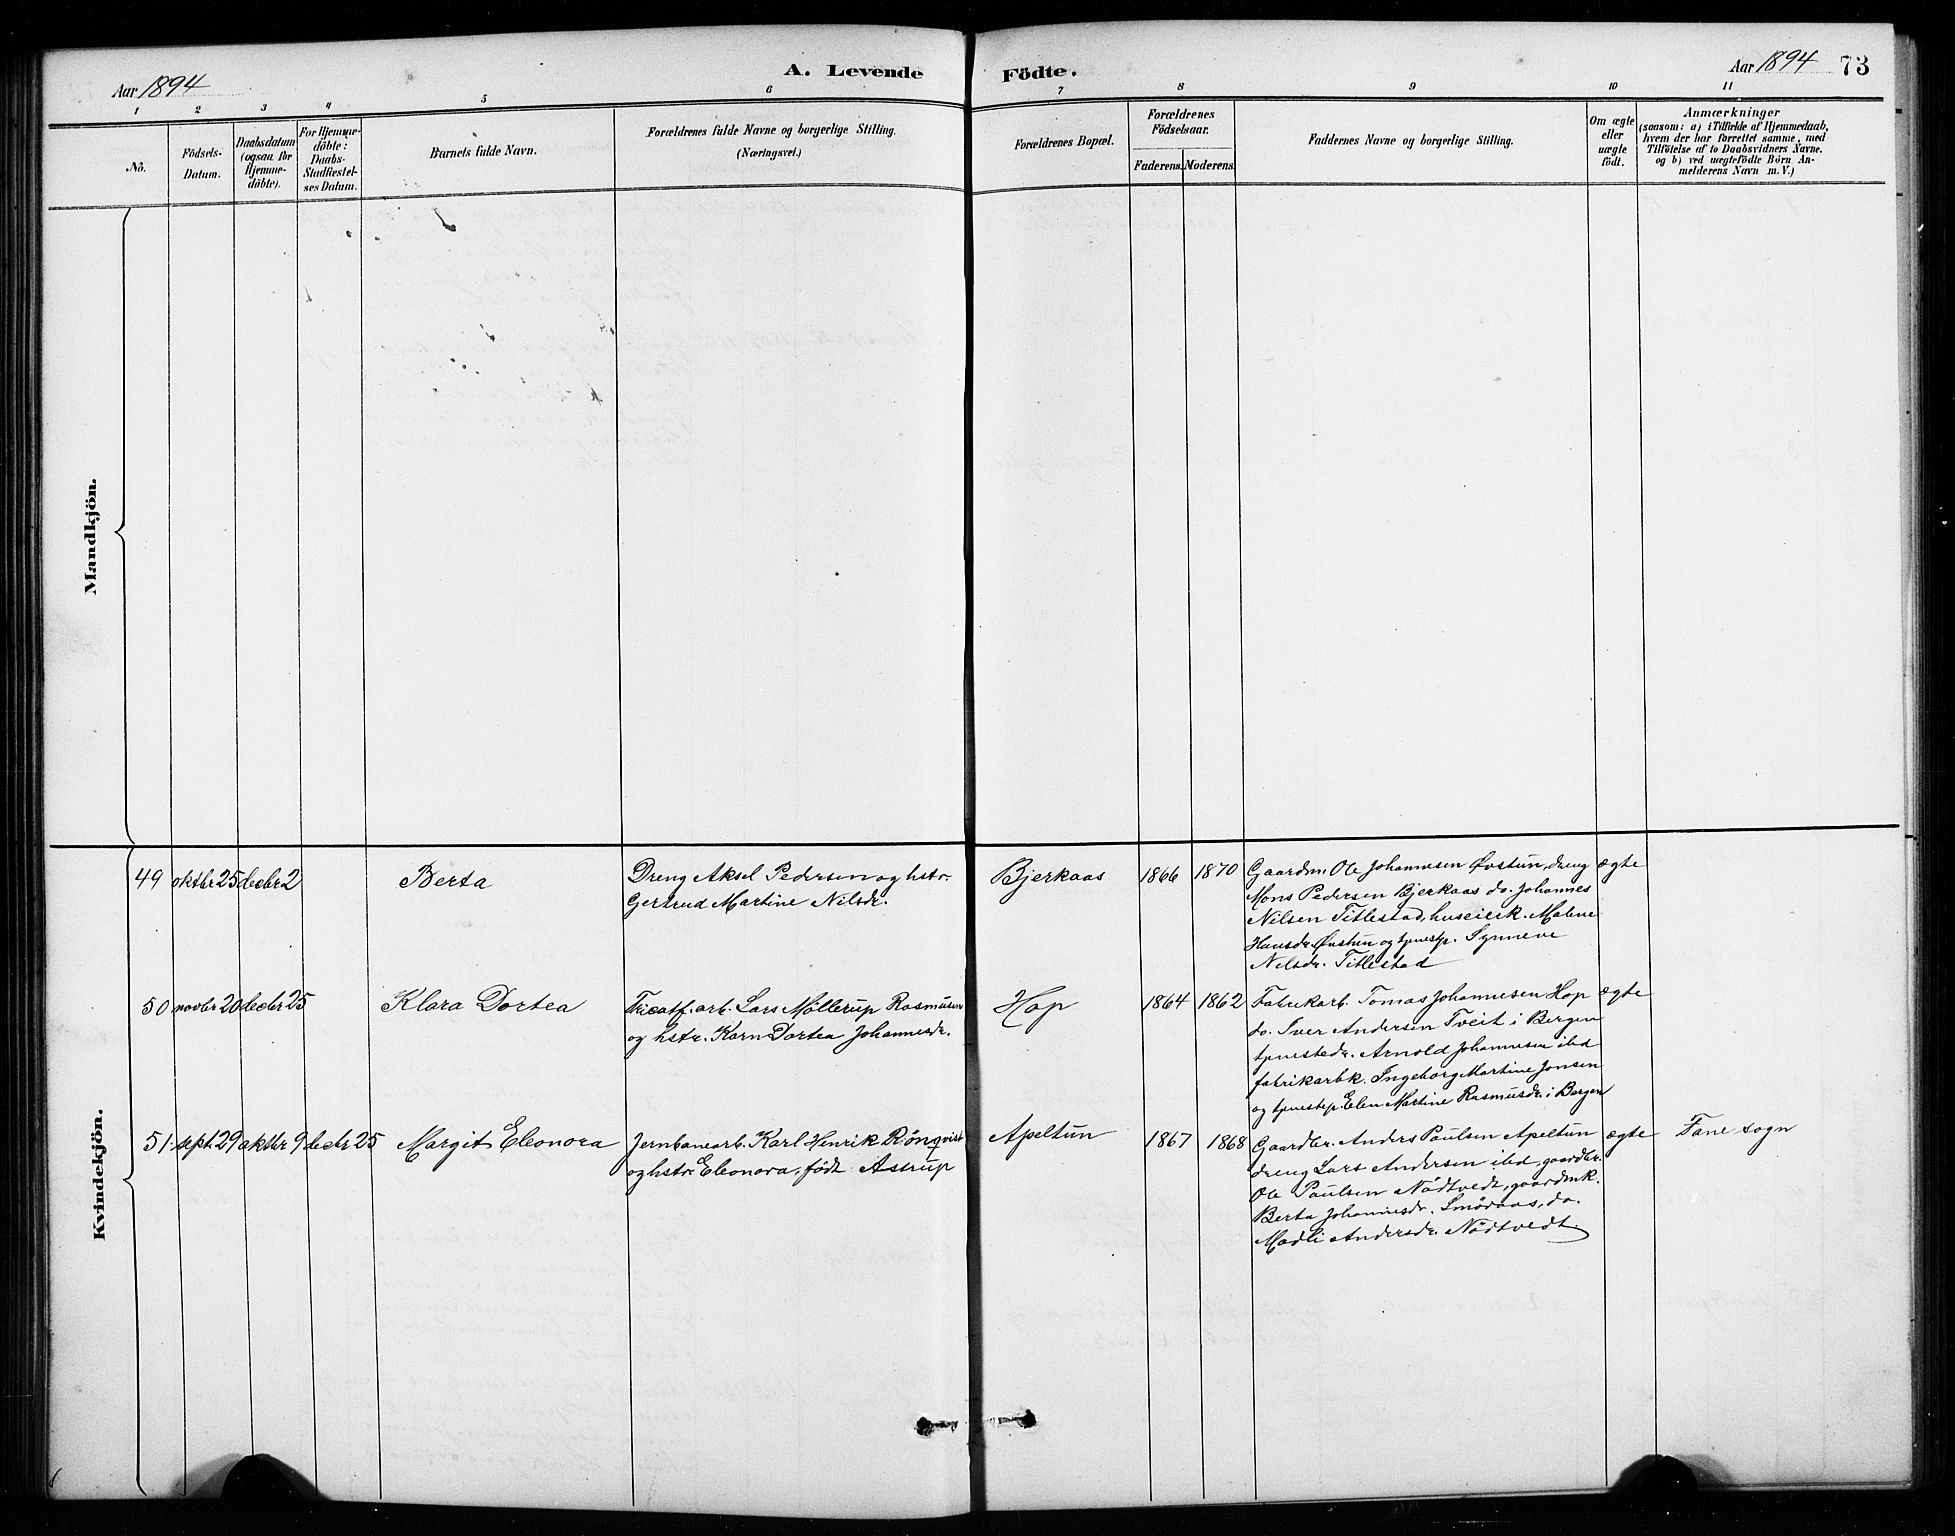 Aar 1894
A. Levende
Födte.
Aar 1894
73
1 2 3 4 5 6 7 8 9 10 11
No.
Födsels-
Datum.
Daabsdatum
(ogsaa for
Hjemme-
döbte).
For Hjemme-
döbte:
Daabs-
Stadfæstel-
ses Datum.
Barnets fulde Navn.
Forældrenes fulde Navne og borgerlige Stilling.
(Næringsvei.)
Forældrenes Bopæl.
Forældrenes
Födselsaar.
Faderens. Moderens.
Faddernes Navne og borgerlige Stilling.
Om ægte
eller
uægte
födt.
Anmærkninger
(saasom: a) i Tilfælde af Hjemmedaab,
hvem der har forrettet samme, med
Tilföielse af to Daabsvidners Navne.
og b) ved uægtefödte Börn An-
melderens Navn m. V.)
Mandkjön.
Kvindekjön.
49 oktbr 25 decbr 2 Berta
Dreng Aksel Pedersen og hstr.
Gertrud Martine Nilsdr.
Bjerkaas 1866 1870
Gaardm. Ole Johannesen Øvstun, dreng
Mons Pedersen Bjerkaas do. Johannes
Nilsen Titlestad, huseiersk. Malene
Hansdr. Øvstun og tjenestp. Synneve
Nilsdr. Titlestad
ægte
50 novbr 20 decbr 25 Klara Dortea
Tricotf.arb. Lars Möllerup Rasmusen
og hstr. Karn Dortea Johannesdr.
Hop 1864 1862
Fabrikarb. Tomas Johannesen Hop
do. Iver Andersen Tveit i Bergen
tjenestedr. Arnold Johannesen ibd
fabrikarbk. Ingeborg Martine Jonsen
og tjenestep. Elen Martine Rasmusdr. i Bergen
ægte
51 sept. 29 oktbr 9 decbr 25 Margit Eleonora
Jernbanearb. Karl Henrik Rönqvist
og hstr. Eleonora, födt Astrup
Apeltun 1867 1868
Gaardbr. Anders Paulsen Apeltun
dreng Lars Andersen ibd, gaardbr.
Ole Paulsen Nödtvedt, gaardmk.
Berta Johannesdr. Smöraas, do.
Madli Andersdr. Nödtvedt.
ægte
Fane sogn